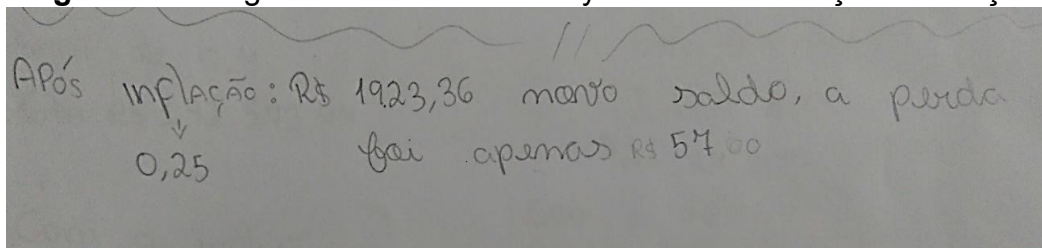 Após inflação: R$ 1923,36 novo saldo, a perda
0,25 foi apenas R$ 57,00